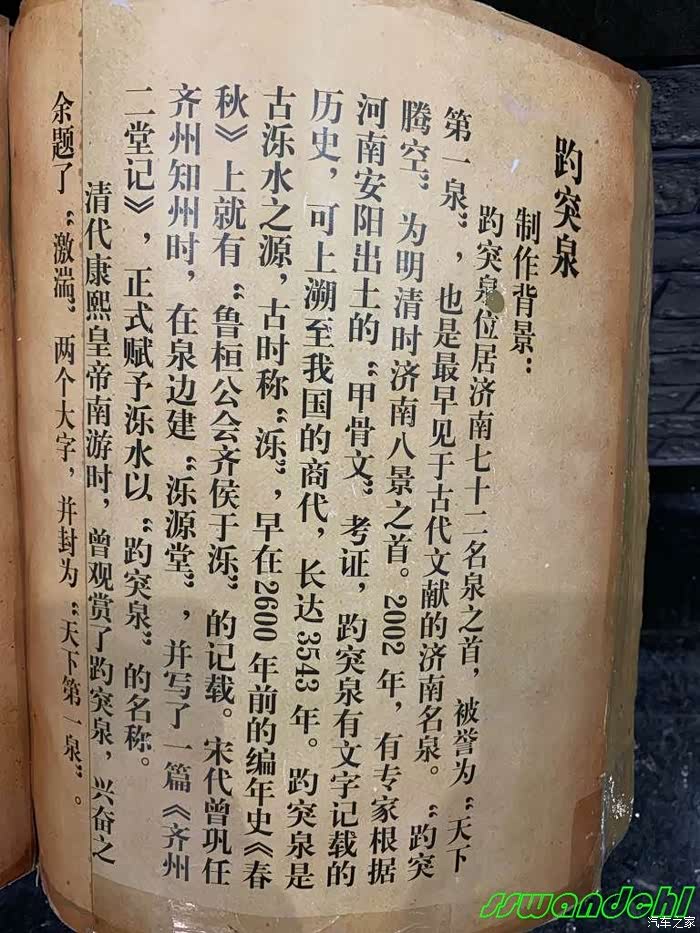 趵突泉
制作背景：
趵突泉位居济南七十二名泉之首，被誉为“天下
第一泉”，也是最早见于古代文献的济南名泉。“趵突
腾空”为明清时济南八景之首。2002年，有专家根据
河南安阳出土的“甲骨文”考证，趵突泉有文字记载的
历史，可上溯至我国的商代，长达3543年。趵突泉是
古泺水之源，古时称“泺”，早在2600年前的编年史《春
秋》上就有“鲁桓公会齐侯于泺”的记载。宋代曾巩任
齐州知州时，在泉边建“泺源堂”，并写了一篇《齐州
二堂记》，正式赋予泺水以“趵突泉”的名称。
清代康熙皇帝南游时，曾观赏了趵突泉，兴奋之
余题了“激湍”两个大字，并封为“天下第一泉”。
sswandchl
汽车之家